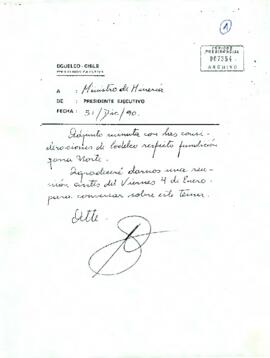 1
PERIODO
PRESIDENCIAL
007354
ARCHIVO
CODELCO - CHILE
PRESIDENTE EJECUTIVO
A : Ministro de Minería
DE : PRESIDENTE EJECUTIVO
FECHA : 31/Dic/90.
Adjunto minuta con las consi-
deraciones de Codelco respecto fundición
zona Norte.
Agradeceré darnos una reu-
nión antes del Viernes 4 de Enero
para conversar sobre este tema.
Atte.